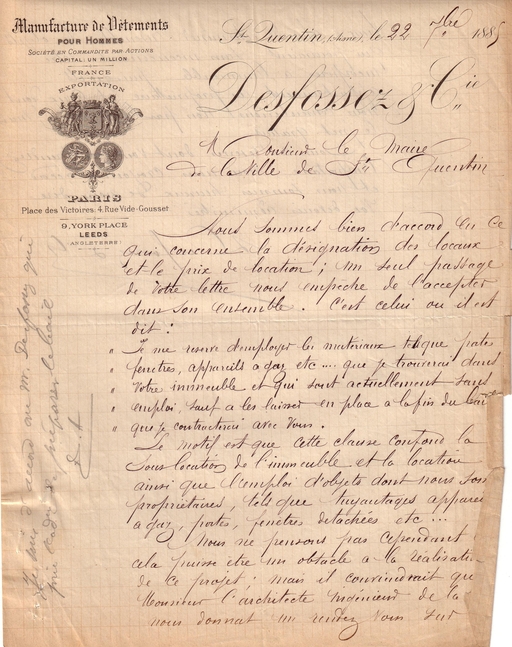 Manufacture de Vêtements
POUR HOMMES
SOCIÉTÉ EN COMMANDITE PAR ACTIONS
CAPITAL: UN MILLION
FRANCE
EXPORTATION
PARIS
Place des Victoires, 4, Rue Vide-Gousset
9, YORK PLACE
LEEDS
(ANGLETERRE)
St Quentin (Aisne), le 22 7bre 1885
Desfossez & Cie
Monsieur le Maire
de la Ville de St Quentin
Nous sommes bien d'accord en ce
qui concerne la désignation des locaux
et le prix de location ; un seul passage
de votre lettre nous empêche de l'accepter
dans son ensemble. C'est celui où il est
dit :
" Je me reserve d'employer les materiaux tels que portes
" fenêtres, appareils a gaz etc .... que je trouverai dans
" votre immeuble et qui sont actuellement sans
" emploi, sauf a les laisser en place a la fin du bail
" que je contracterai avec vous.
Le motif est que cette clause confond la
sous location de l'immeuble et la location
ainsi que l'emploi d'objets dont nous som
propriétaires, tels que tuyautages apparei
a gaz, portes, fenêtres détachées etc ...
Nous ne pensons pas cependant
cela puisse être un obstacle a la réalisati
de ce projet ; mais il conviendrait qu
Monsieur l'architecte Ingénieur de la
nous donnat un rendez vous sur
d'accord avec M. Desfossez qui
prie de préparer le bail